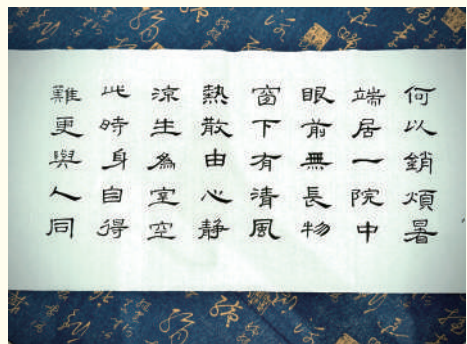 何以銷煩暑
端居一院中
眼前無長物
窗下有清風
熱散由心静
涼生為室空
此時身自得
難更與人同